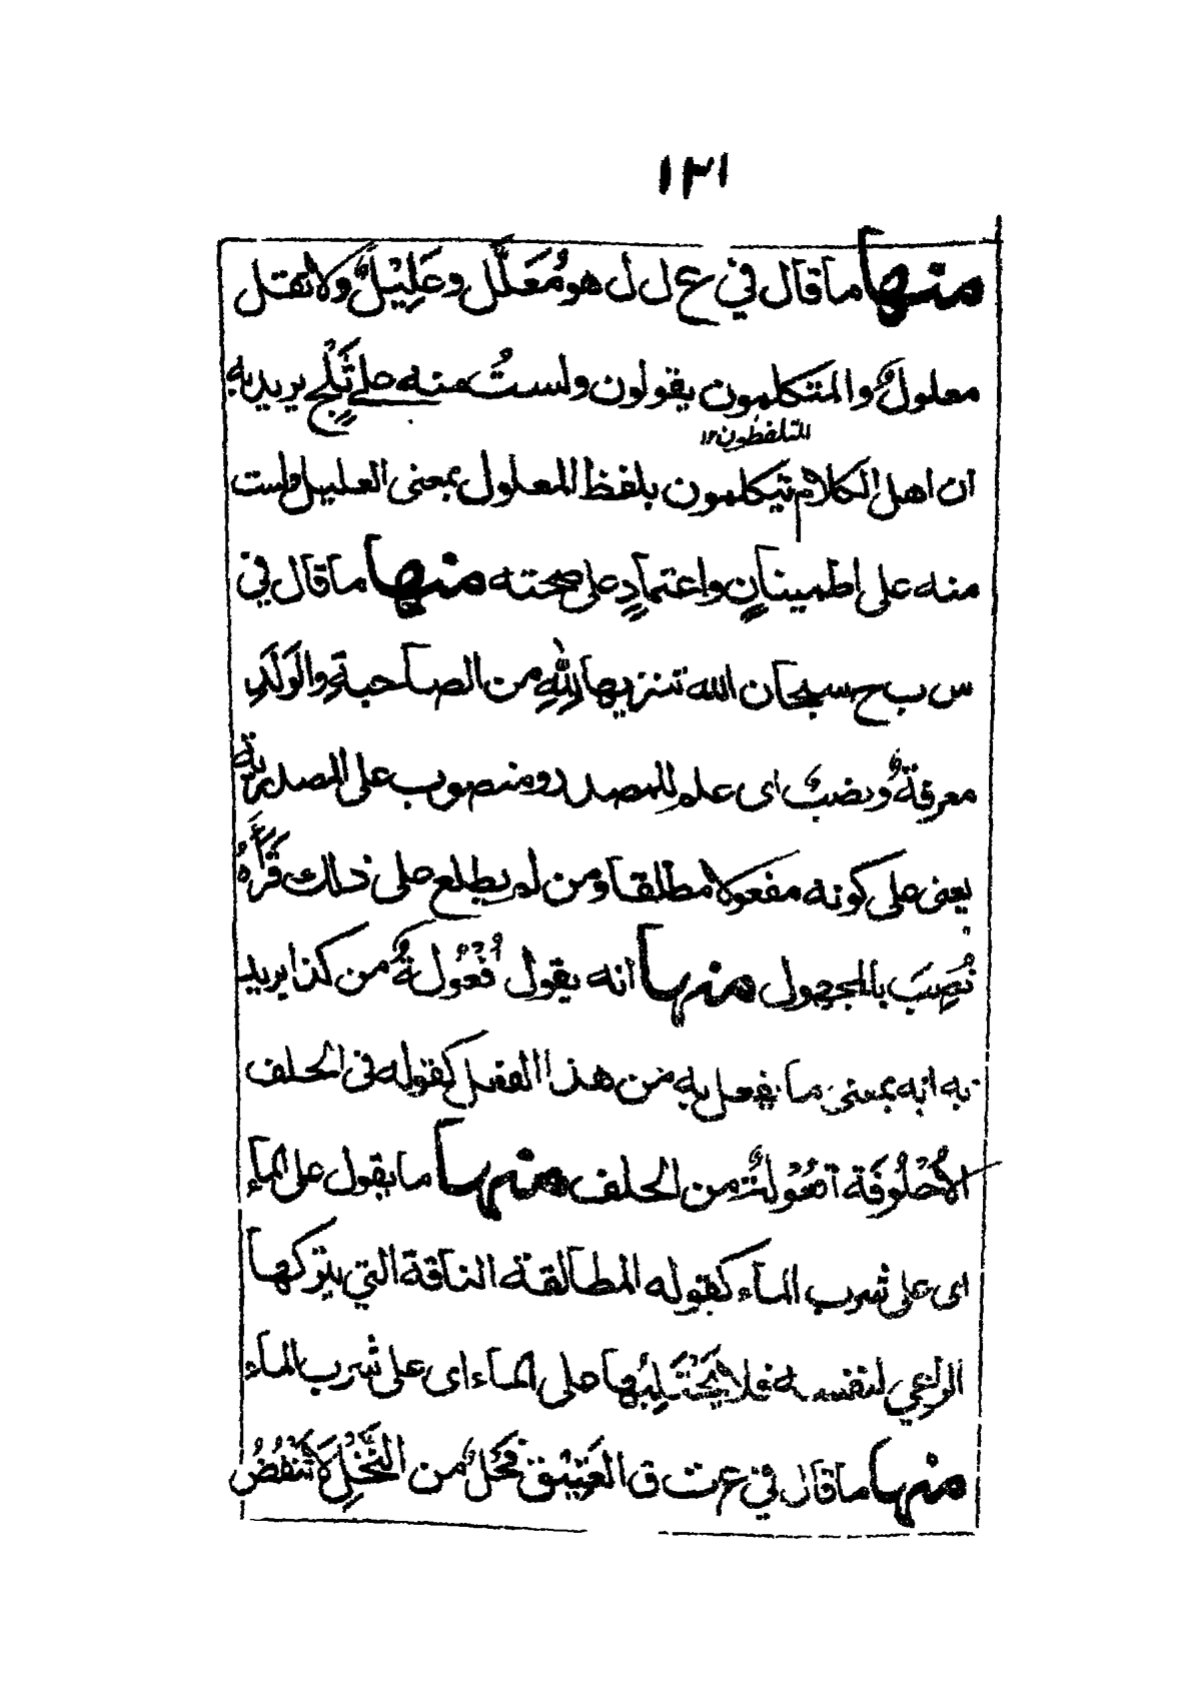 ١٣١
منها ما قال في ع ل ل هو مُعَلَّل وعَلِيْلٌ ولا تقل
معلولٌ والمتكلمون يقولون ولستُ منه على ثَلَجٍ يريد به
المتلفظون١٢
ان اهل الكلام يتكلمون بلفظ المعلول بمعنى العليل ولست
منه على اطمينانٍ واعتمادٍ على صحته منها ما قال في
س ب ح سبحان الله تنزيها لِلّٰهِ من الصاحبةِ والوَلَدِ
معرفةٌ ونصبٌ اى علم للمصدر ومنصوب على المصدرية
يعنى على كونه مفعولا مطلقا ومن لم يطلع على ذلك قَرَأَهُ
نُصِبَ بالمجهول منها انه يقول اُفْعُوْلَةٌ من كذا يريد
به انه بمعنى ما يفعل به من هذا الفعل كقوله فى الحلف
الاُحْلُوفَة اُفْعُوْلَةٌ من الحلف منها ما يقول على الماء
اى على شرب الماء كقوله الطالقة الناقة التي يتركها
الراعي لنفسه فلا يَحْتَلِبُها على الماء اى على شرب الماء
منها ما قال في ع ت ق العَتِيْق فَحْلٌ من النَّخْلِ لا تَنْفُضُ